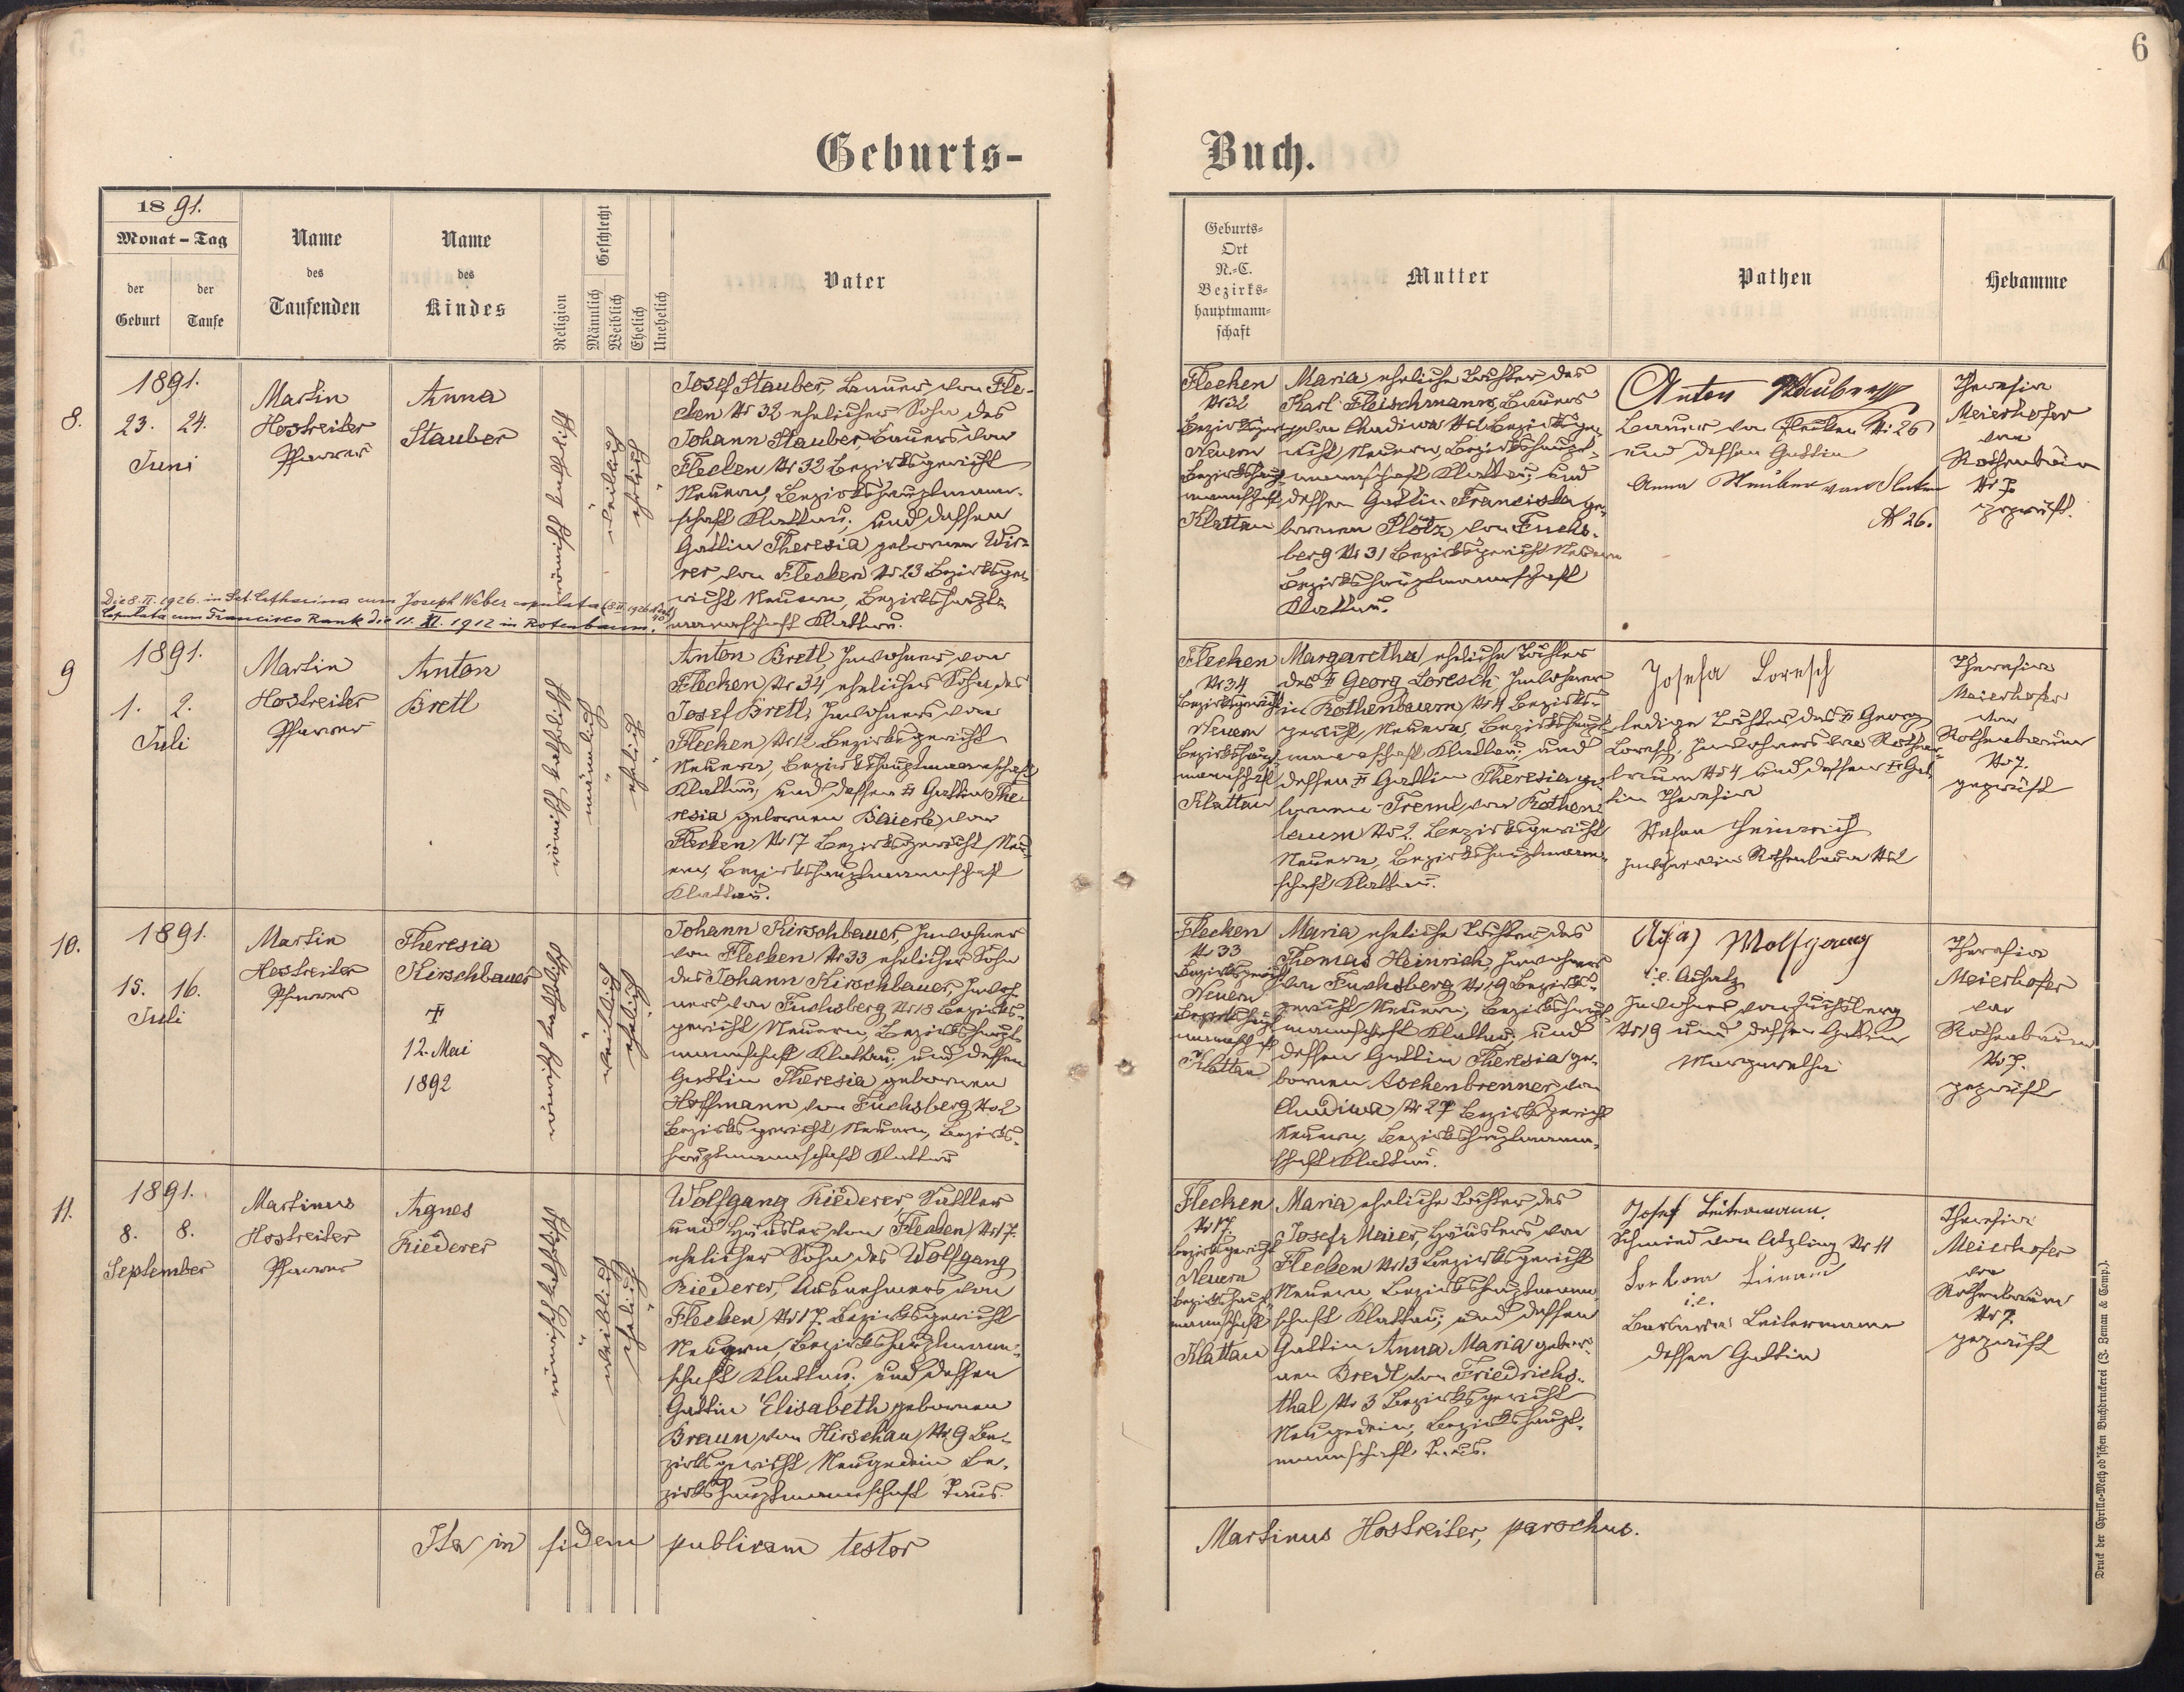 6
Geburts-
Buch.
1891.
Monat - Tag
der Geburt
der Taufe
Name
des
Taufenden
Name
des
Kindes
Religion
Geschlecht
Männlich
Weiblich
Ehelich
Unehelich
Vater
Geburts-
Ort
N.-C.
Bezirks-
hauptmann-
schaft
Mutter
Pathen
Hebamme
8.
1891.
23. 24.
Juni
Martin
Hostreiter
Pfarrer
Anna
Stauber
römisch katholisch
weiblich
ehelich
Josef Stauber, Bauer von Fle-
cken Nr 32 ehelicher Sohn des
Johann Stauber, Bauers von
Flecken Nr 32 Bezirksgericht
Neuern, Bezirkshauptmann-
schaft Klattau; und dessen
Gattin Theresia gebornen Wie-
rer von Flecken Nr 23 Bezirksge-
richt Neuern, Bezirkshaupt-
mannschaft Klattau.
Die 8. II. 1926. in Sct. Catharina cum Joseph Weber copulata
Copulata cum Francisco Rank die 11. XI. 1912 in Rotenbaum.
Flecken
Nr 32
Bezirksger
Neuern
Bezirkshaupt-
mannschaft
Klattau
Maria eheliche Tochter des
Karl Fleischmann, Bauers
von Chudiwa Bezirksge-
richt Neuern, Bezirkshaupt-
mannschaft Klattau; und
dessen Gattin Franciska ge-
bornen Plötz von Fuchs-
berg Nr 31 Bezirksgericht Neuern
Bezirkshauptmannschaft
Klattau.
Anton Stauber
Bauer von Flecken Nr 26
und dessen Gattin
Anna Stauber von Flecken
Nr 26.
Theresia
Meierhofer
von
Rothenbaum
Nr 7.
geprüft.
9
1891.
1. 2.
Juli
Martin
Hostreiter
Pfarrer
Anton
Bretl
römisch katholisch
männlich
ehelich
Anton Bretl, Inwohner von
Flecken Nr 34 ehelicher Sohn des
Josef Bretl, Inwohners von
Flecken Nr 12 Bezirksgericht
Neuern, Bezirkshauptmannschaft
Klattau; und dessen Gattin The-
resia gebornen Baierl von
Flecken Nr 17 Bezirksgericht Neu-
ern, Bezirkshauptmannschaft
Klattau.
Flecken
Nr 34
Bezirksgericht
Neuern
Bezirkshaupt-
mannschaft
Klattau
Margaretha eheliche Tochter
des † Georg Loresch, Inwohner
in Rothenbaum Nr 4 Bezirks-
gericht Neuern, Bezirkshaupt-
mannschaft Klattau; und
dessen † Gattin Theresia ge-
bornen Treml von Rothen-
baum Nr 2. Bezirksgericht
Neuern, Bezirkshauptmann-
schaft Klattau.
Josefa Loresch
ledige Tochter des † Georg
Loresch, Inwohners von Rothen-
baum Nr 4 und dessen † Gat-
tin Theresia
Stefan Heinrich
Rothenbaum Nr 2
Theresia
Meierhofer
von
Rothenbaum
Nr 7.
geprüft
10.
1891.
15. 16.
Juli
Martin
Hostreiter
Pfarrer
Theresia
Kirschbauer
†
12. Mai
1892
römisch katholisch
weiblich
ehelich
Johann Kirschbauer, Inwohner
von Flecken Nr 33 ehelicher Sohn
des Johann Kirschbauer, Inwoh-
ners von Fuchsberg Nr 18 Bezirks-
gericht Neuern, Bezirkshaupt-
mannschaft Klattau; und dessen
Gattin Theresia gebornen
Hoffmann von Fuchsberg Nr 2
Bezirksgericht Neuern, Bezirks-
hauptmannschaft Klattau
Flecken
Nr 33
Bezirksgericht
Neuern
Bezirkshaupt
mannschaft
Klattau
Maria eheliche Tochter des
Thomas Heinrich, Inwohners
von Fuchsberg Nr 19 Bezirks-
gericht Neuern; Bezirkshaupt-
mannschaft Klattau; und
dessen Gattin Theresia ge-
bornen Aschenbrenner von
Chudiwa Nr 27 Bezirksgericht
Neuern, Bezirkshauptmann-
schaft Klattau.
Wolfgang
i.e. Achatz
Inwohner von Fuchsberg
Nr 19 und dessen Gattin
Margaretha
Theresia
Meierhofer
von
Rothenbaum
Nr 7.
geprüft
11.
1891.
8. 8.
September
Martinus
Hostreiter
Pfarrer
Agnes
Riederer
römisch katholisch
weiblich
ehelich
Wolfgang Riederer, Sattler
und Häusler von Flecken Nr 17.
ehelicher Sohn des Wolfgang
Riederer, Ausnehmers von
Flecken Nr 17. Bezirksgericht
Neuern, Bezirkshauptmann-
schaft Klattau; und dessen
Gattin Elisabeth gebornen
Braun von Hirschau Nr 9 Be-
zirksgericht Neugedein Be-
zirkshauptmannschaft Taus.
Flecken
Nr 17.
Bezirksgericht
Neuern
Bezirkshaupt-
mannschaft
Klattau
Maria eheliche Tochter des
Josef Maier, Häuslers von
Flecken Nr 13 Bezirksgericht
Neuern Bezirkshauptmann-
schaft Klattau; und dessen
Gattin Anna Maria gebor-
nen Bredl von Friedrichs-
thal Nr 3 Bezirksgericht
Neugedein, Bezirkshaupt-
mannschaft Taus.
Josef Leitermann.
Schmied von Atzling Nr 11
i.e.
Barbara Leitermann
dessen Gattin
Theresia
Meierhofer
von
Rothenbaum
Nr 7.
geprüft
Ita in fidem publicam testor
Martinus Hostreiter, parochus.
Druck der Cyrillo-Method'schen Buchdruckerei (J. Zeman & Comp.).